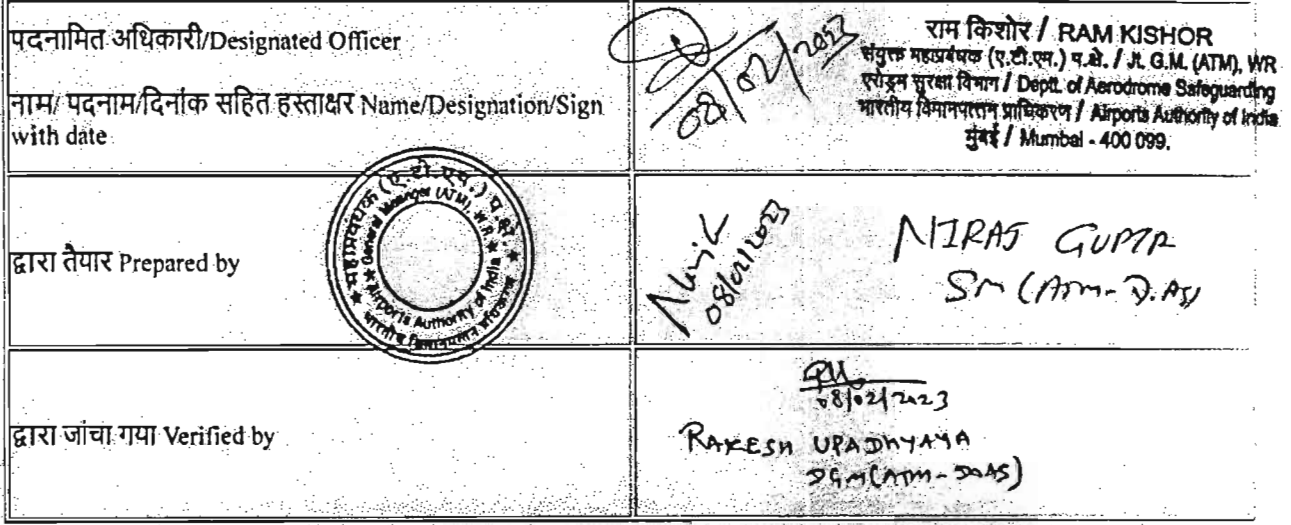 पदनामित अधिकारी/Designated Officer
नाम/ पदनाम/दिनांक सहित हस्ताक्षर Name/Designation/Sign
with date
08/02/2023
राम किशोर / RAM KISHOR
संयुक्त महाप्रबंधक (ए.टी.एम.) प.क्षे. / Jt. G.M. (ATM), WR
एरोड्रम सुरक्षा विभाग / Deptt. of Aerodrome Safeguarding
भारतीय विमानपत्तन प्राधिकरण / Airports Authority of India
मुंबई / Mumbai - 400 099.
द्वारा तैयार Prepared by
महाप्रबंधक (ए.टी.एम.) प.क्षे.
General Manager (ATM), W.R.
Airports Authority of India
भारतीय विमानपत्तन प्राधिकरण
08/02/2023
NIRAJ GUPTA
SM (ATM-DOAS)
द्वारा जांचा गया Verified by
08/02/2023
RAKESH UPADHYAYA
DGM (ATM-DOAS)